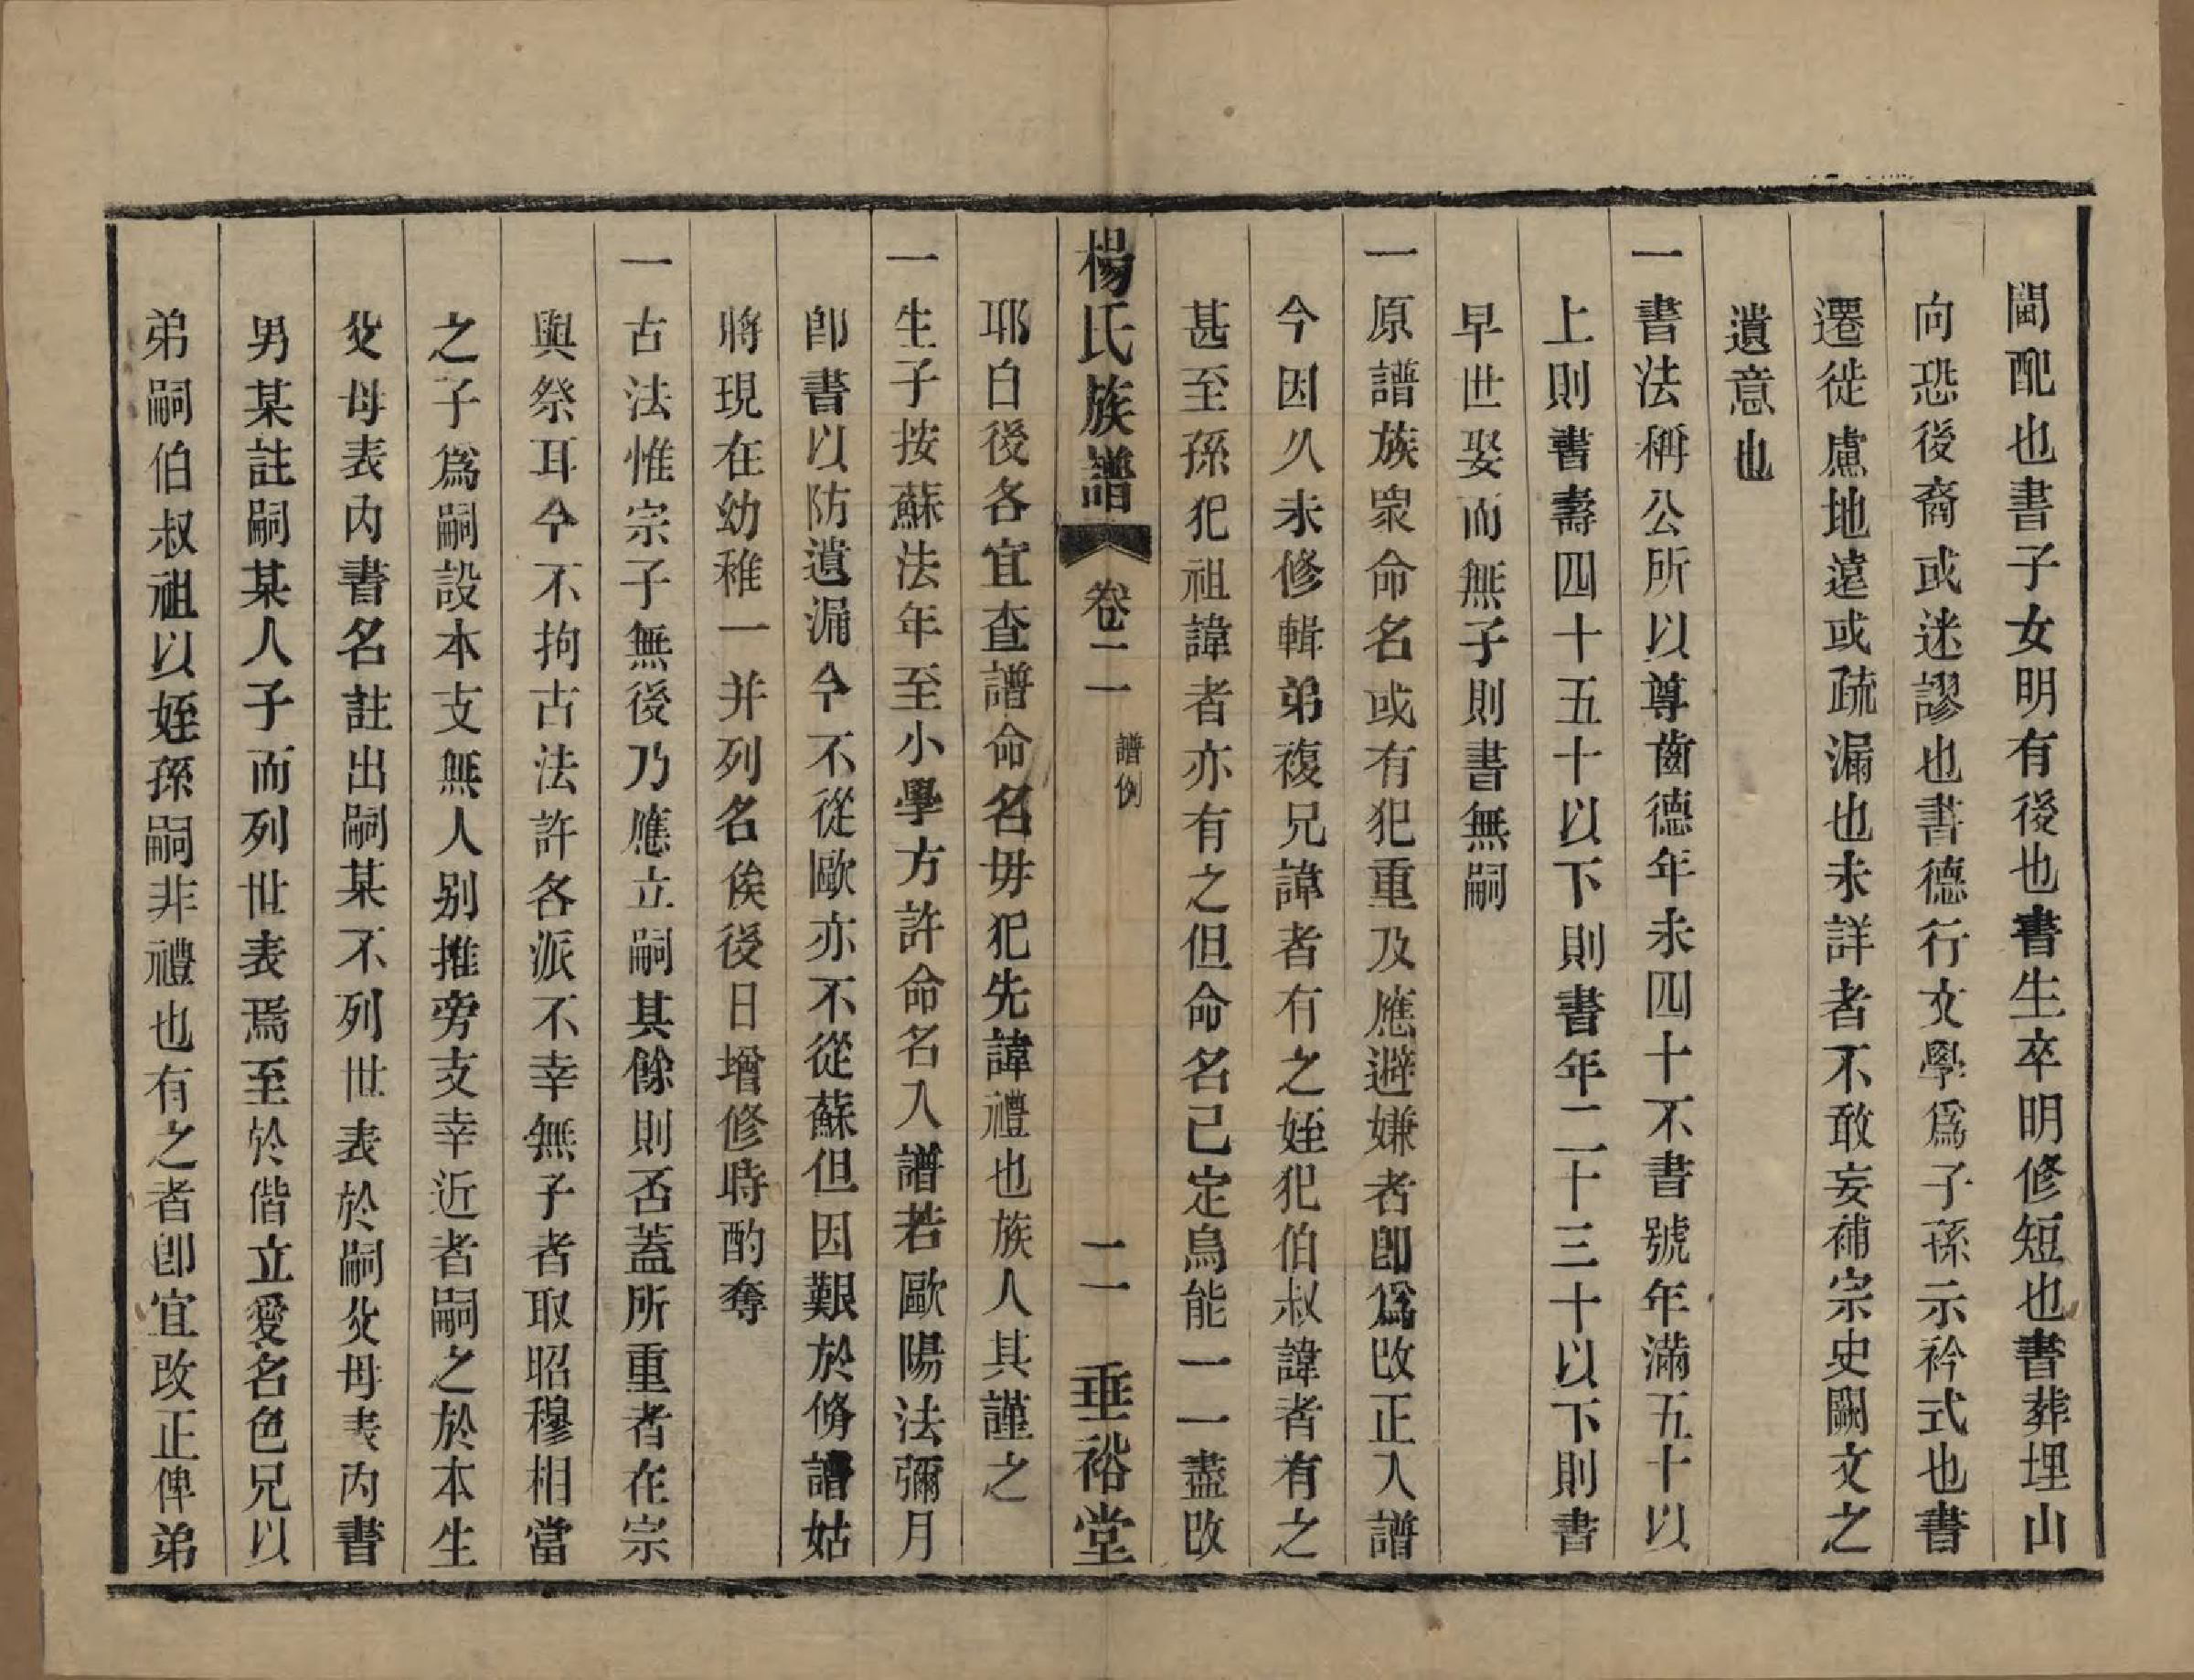 閫配也書子女明有後也書生卒明修短也書葬埋山
向恐後裔或迷謬也書德行文學爲子孫示衿式也書
遷徙慮地遠或疏漏也未詳者不敢妄補宗史闕文之
遺意也
一書法稱公所以尊齒德年未四十不書號年滿五十以
上則書壽四十五十以下則書年二十三十以下則書
早世娶而無子則書無嗣
一原譜族衆命名或有犯重及應避嫌者卽爲改正入譜
今因久未修輯弟複兄諱者有之姪犯伯叔諱者有之
甚至孫犯祖諱者亦有之但命名已定烏能一一盡改
楊氏族譜 卷二 譜例 二 垂裕堂
耶自後各宜查譜命名毋犯先諱禮也族人其謹之
一生子按蘇法年至小學方許命名入譜若歐陽法彌月
卽書以防遺漏今不從歐亦不從蘇但因艱於脩譜姑
將現在幼稚一并列名俟後日增修時酌奪
一古法惟宗子無後乃應立嗣其餘則否蓋所重者在宗
與祭耳今不拘古法許各派不幸無子者取昭穆相當
之子爲嗣設本支無人別推旁支幸近者嗣之於本生
父母表內書名註出嗣某不列世表於嗣父母表內書
男某註嗣某人子而列世表焉至於偕立愛名色兄以
弟嗣伯叔祖以姪孫嗣非禮也有之者卽宜改正俾弟